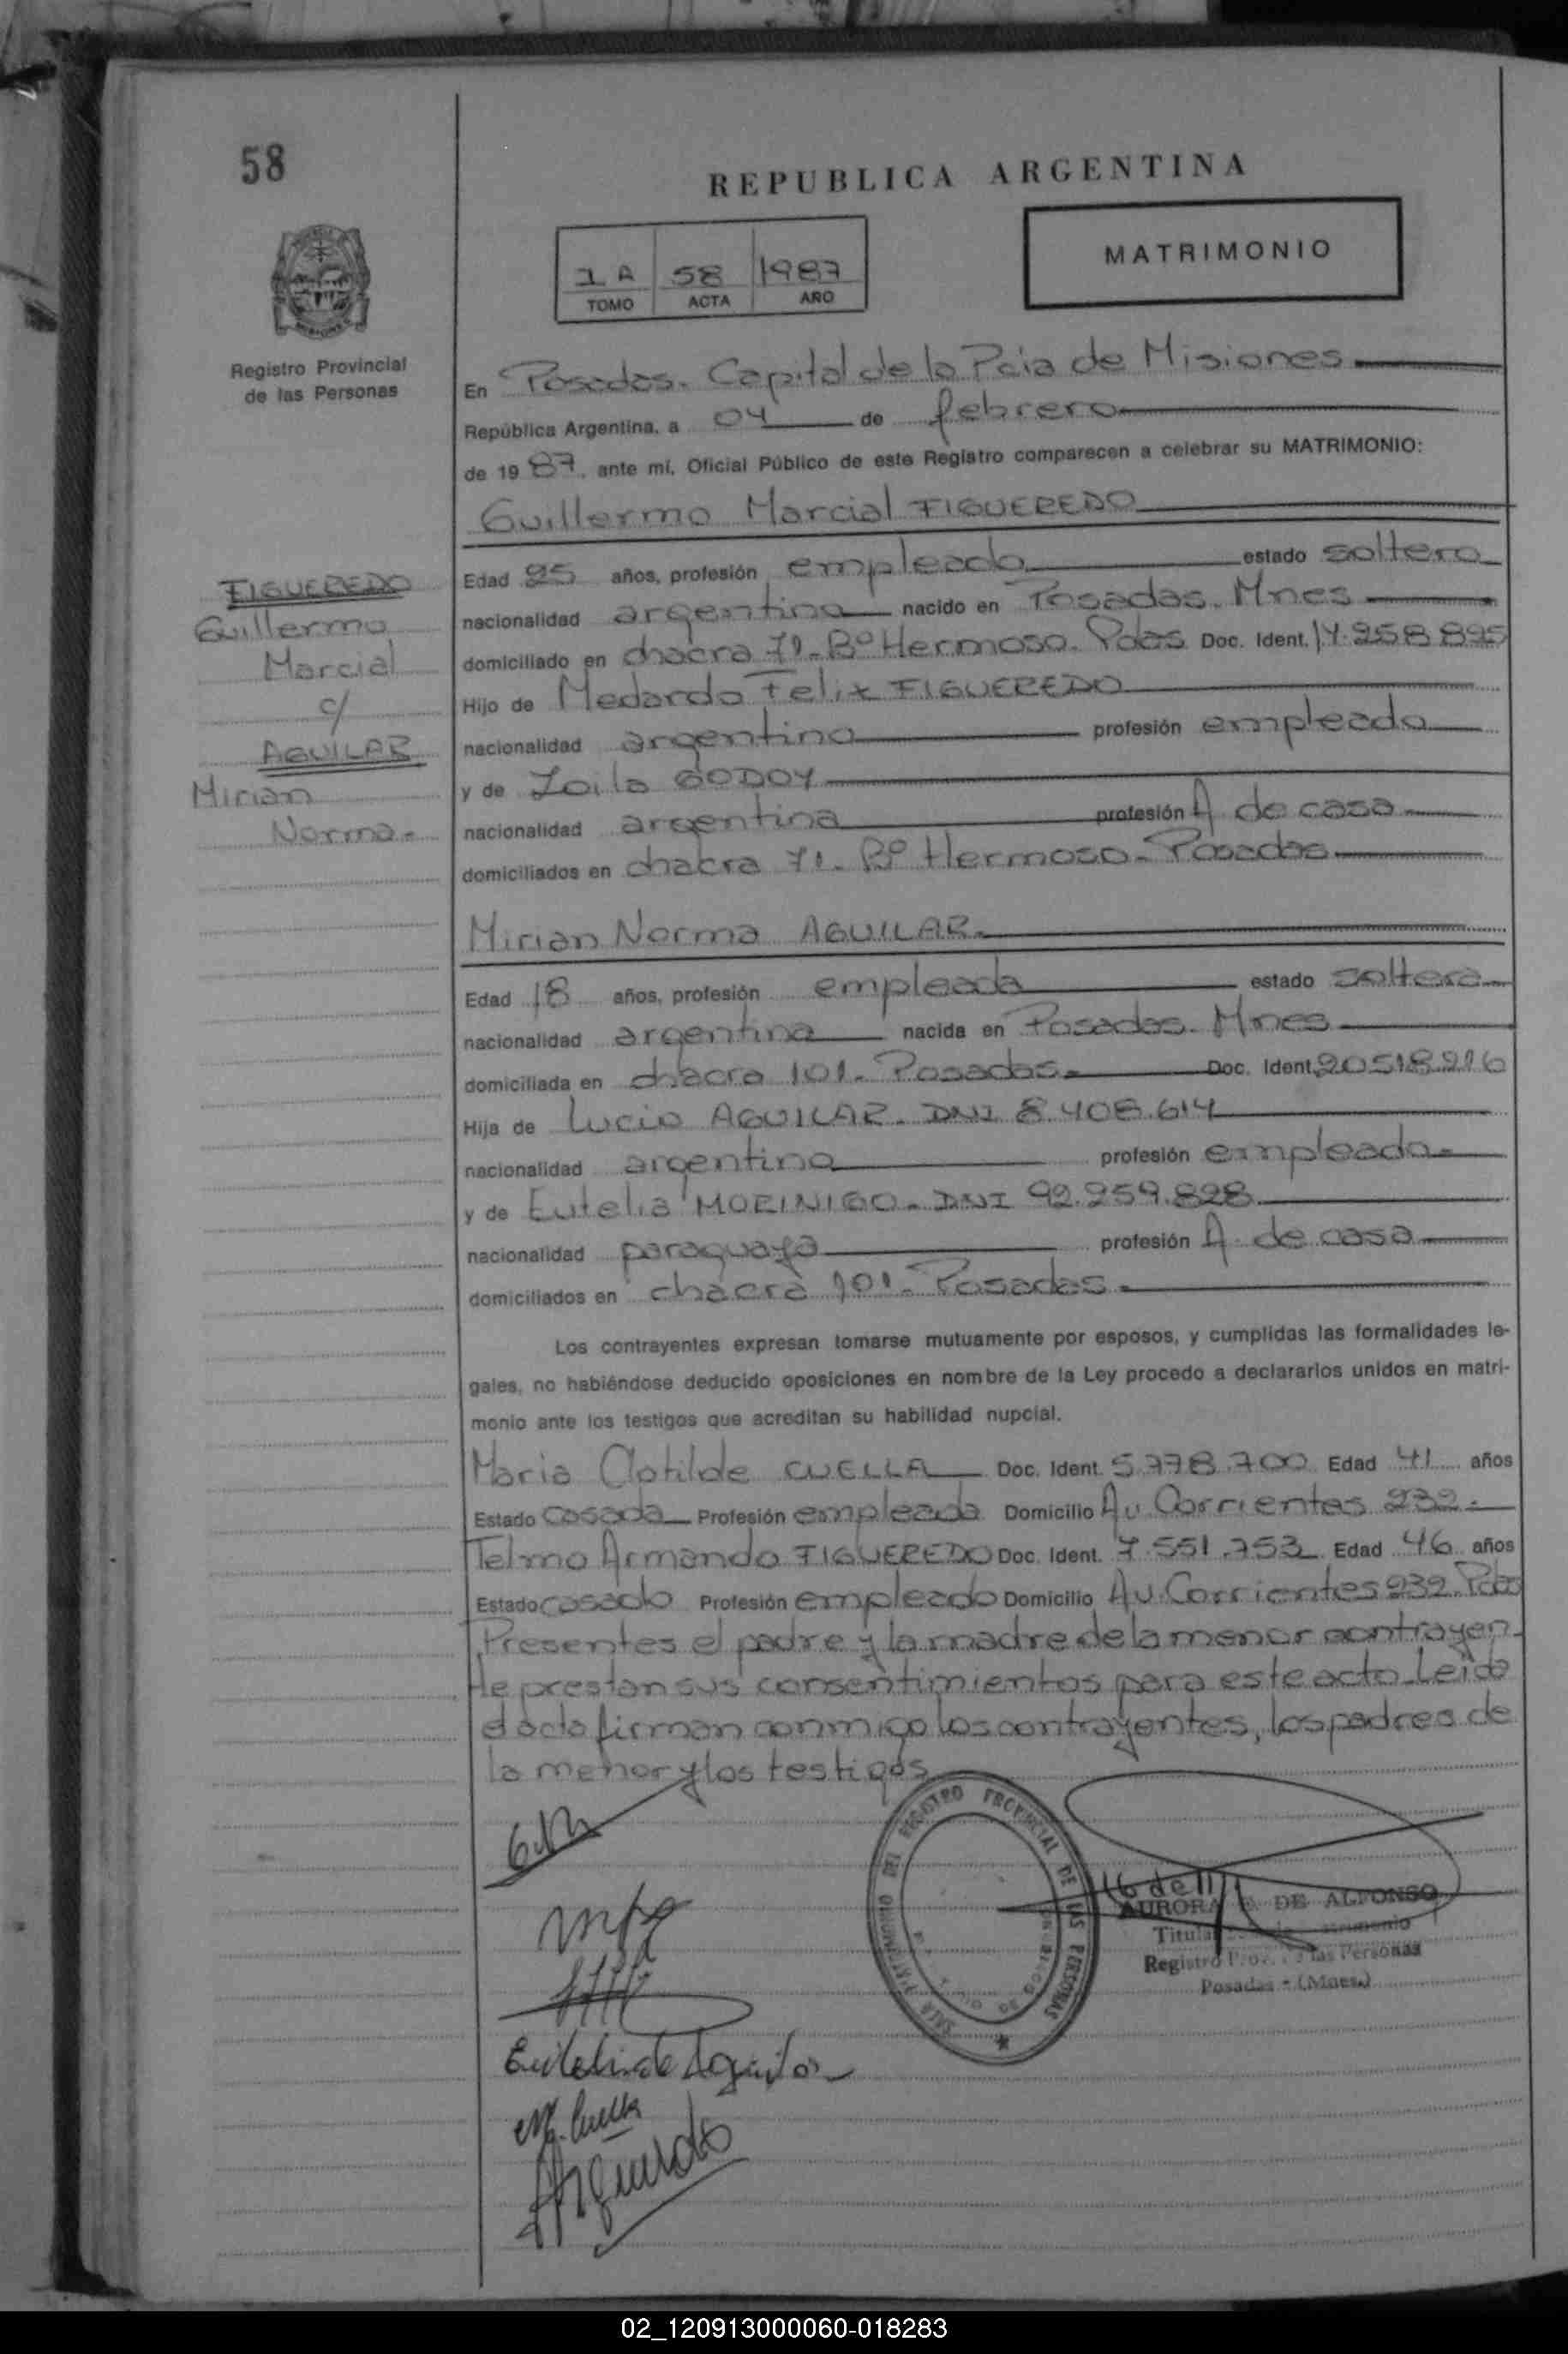 58
REPUBLICA ARGENTINA
1 A 58 1987
TOMO ACTA AÑO
MATRIMONIO
Registro Provincial
de las Personas
En Posadas. Capital de la Pcia de Misiones
República Argentina, a 04 de febrero
de 1987, ante mí, Oficial Público de este Registro comparecen a celebrar su MATRIMONIO:
Guillermo Marcial FIGUEREDO
FIGUEREDO
Guillermo
Marcial
c/
AGUILAR
Mirian
Norma.
Edad 25 años, profesión empleado estado soltero
nacionalidad argentino nacido en Posadas. Mnes
domiciliado en chacra 71. Bº Hermoso. Pdas Doc. Ident. 14.258.895
Hijo de Medardo Felix FIGUEREDO
nacionalidad argentino profesión empleado
y de Zoila GODOY
nacionalidad argentina profesión A de casa
domiciliados en chacra 71. Bº Hermoso. Posadas
Mirian Norma AGUILAR.
Edad 18 años, profesión empleada estado soltera
nacionalidad argentina nacida en Posadas. Mnes
domiciliada en chacra 101. Posadas. Doc. Ident. 20518.216
Hija de Lucio AGUILAR. DNI 8.408.614
nacionalidad argentino profesión empleado.
y de Eutelia MORINIGO. DNI 92.259.828
nacionalidad paraguaya profesión A. de casa
domiciliados en chacra 101. Posadas.
Los contrayentes expresan tomarse mutuamente por esposos, y cumplidas las formalidades le-
gales, no habiéndose deducido oposiciones en nombre de la Ley procedo a declararlos unidos en matri-
monio ante los testigos que acreditan su habilidad nupcial.
Maria Clotilde CUELLA Doc. Ident. 5.778.700 Edad 41 años
Estado casada Profesión empleada Domicilio Av. Corrientes 232.
Telmo Armando FIGUEREDO Doc. Ident. 7.551.753 Edad 46 años
Estado casado Profesión empleado Domicilio Av. Corrientes 232. Pdas
Presentes el padre y la madre de la menor contrayen-
te prestan sus consentimientos para este acto. Leida
el acta firman conmigo los contrayentes, los padres de
la menor y los testigos.
DEL REGISTRO PROVINCIAL DE LAS PERSONAS
AURORA DE ALFONSO
Registro Prov. de las Personas
Posadas - (Mnes.)
Eutelia de Aguilar
M. Cuella
02_120913000060-018283